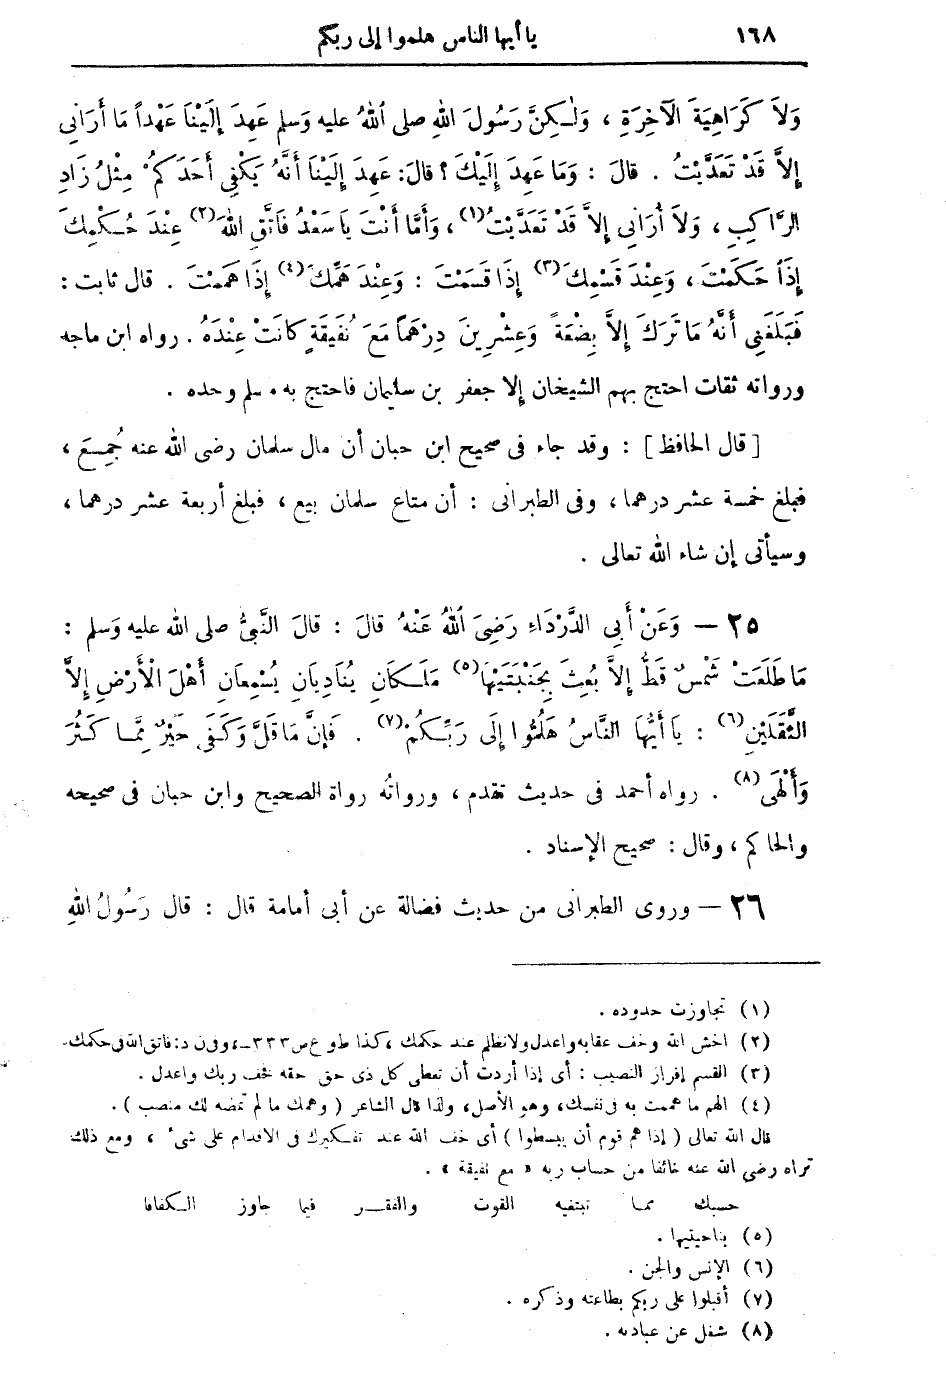 ١٦٨ يا أيها الناس هلموا إلى ربكم
وَلاَ كَرَاهِيَةَ الآخِرَةِ ، وَلٰكِنَّ رَسُولَ اللهِ صلى اللهُ عليه وَسلم عَهِدَ إِلَيْنَا عَهْداً مَا أُرَانِي
إِلاَّ قَدْ تَعَدَّيْتُ . قالَ : وَمَا عَهِدَ إِلَيْكَ ؟ قالَ: عَهِدَ إِلَيْنَا أَنَّهُ يَكْفِي أَحَدَكُمْ مِثْلُ زَادِ
الرَّاكِبِ ، وَلاَ أُرَانِي إِلاَّ قَدْ تَعَدَّيْتُ(١) ، وَأَمَّا أَنْتَ يَا سَعْدُ فَاتَّقِ اللهَ(٢) عِنْدَ حُكْمِكَ
إِذَا حَكَمْتَ ، وَعِنْدَ قَسْمِكَ(٣) إِذَا قَسَمْتَ : وَعِنْدَ هَمِّكَ(٤) إِذَا هَمَمْتَ . قال ثابت :
فَبَلَغَنِي أَنَّهُ مَا تَرَكَ إِلاَّ بِضْعَةً وَعِشْرِينَ دِرْهَماً مَعَ نُفَيْقَةٍ كانَتْ عِنْدَهُ . رواه ابن ماجه
ورواته ثقات احتج بهم الشيخان إلا جعفر بن سليمان فاحتج به مسلم وحده .
[ قال الحافظ ] : وقد جاء فى صحيح ابن حبان أن مال سلمان رضى الله عنه جُمِعَ ،
فبلغ خمسة عشر درهما ، وفى الطبرانى : أن متاع سلمان بيع ، فبلغ أربعة عشر درهما ،
وسيأتى إن شاء الله تعالى .
٢٥ — وَعَنْ أَبِي الدَّرْدَاءِ رَضِيَ اللهُ عَنْهُ قالَ : قالَ النَّبِيُّ صلى الله عليه وَسلم :
مَا طَلَعَتْ شَمْسٌ قَطُّ إِلاَّ بُعِثَ بِجَنْبَتَيْهَا(٥) مَلَكَانِ يُنَادِيَانِ يُسْمِعَانِ أَهْلَ الْأَرْضِ إِلاَّ
الثَّقَلَيْنِ(٦) : يَا أَيُّهَا النَّاسُ هَلُمُّوا إِلَى رَبِّكُمْ(٧) . فَإِنَّ مَا قَلَّ وَكَفَى خَيْرٌ مِمَّا كَثُرَ
وَأَلْهَى(٨) . رواه أحمد فى حديث تقدم ، ورواتُه رواة الصحيح وابن حبان فى صحيحه
والحاكم ، وقال : صحيح الإسناد .
٢٦ — وروى الطبرانى من حديث فضالة عن أبى أمامة قال : قال رَسُولُ اللهِ
(١) تجاوزت حدوده .
(٢) اخش الله وخف عقابه واعدل ولا تظلم عند حكمك ، كذا ط و ع ص ٣٣٣ - ٤ ، وفى ن د : فاتق الله فى حكمك .
(٣) القسم إفراز النصيب : أى إذا أردت أن تعطى كل ذى حق حقه خف ربك واعدل .
(٤) الهم ما هممت به فى نفسك، وهو الأصل، ولذا قال الشاعر ( وهمك ما لم تمضه لك منصب ) .
قال الله تعالى ( إذا هم قوم أن يبسطوا ) أى خف الله عند تفكيرك فى الاقدام على شىء ، ومع ذلك
تراه رضى الله عنه خائفا من حساب ربه « مع نفيقة » .
حسبك مما تبتغيه القوت والفقر فيما جاوز الكفافا
(٥) بناحيتيها .
(٦) الإنس والجن .
(٧) أقبلوا على ربكم بطاعته وذكره .
(٨) شغل عن عبادته .